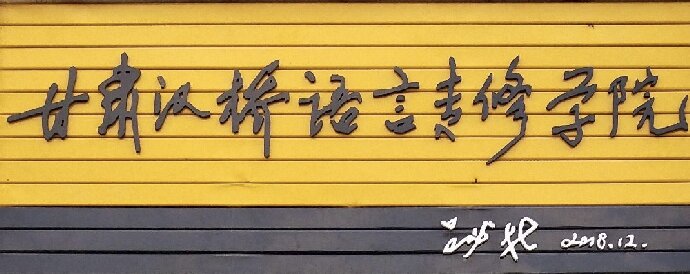 甘肅汉桥语言進修学院
2018.12.